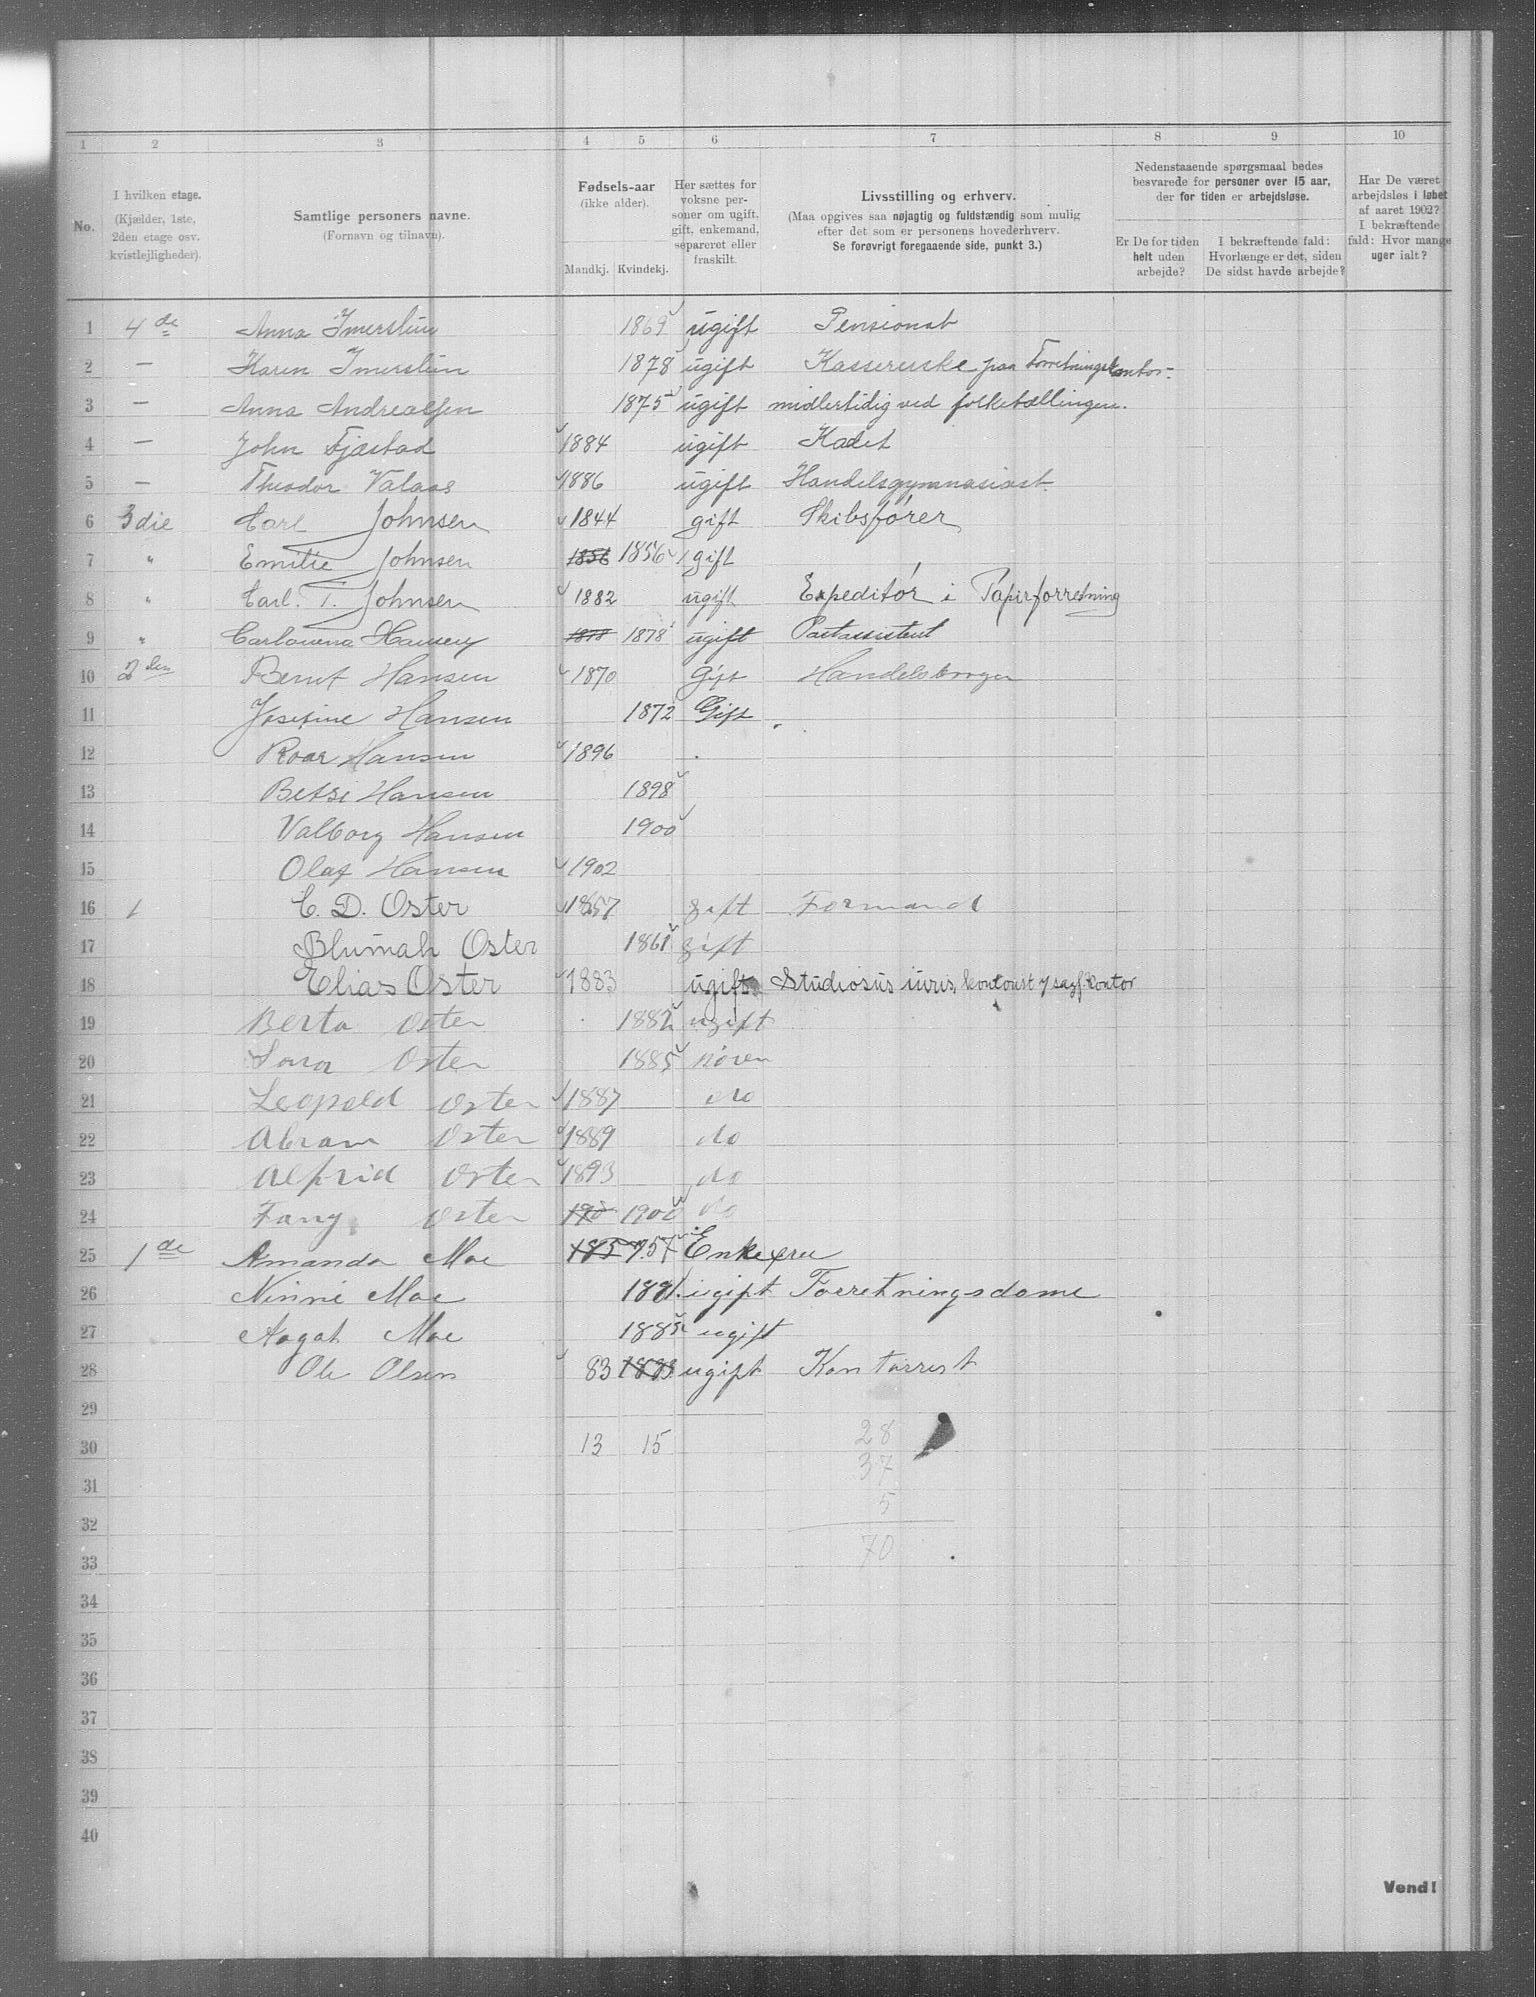 1 2 3 4 5 6 7 8 9 10
No.
I hvilken etage.
(Kjælder, 1ste,
2den etage osv.
kvistlejligheder).
Samtlige personers navne.
(Fornavn og tilnavn).
Fødsels-aar
(ikke alder).
Mandkj. Kvindekj.
Her sættes for
voksne per-
soner om ugift,
gift, enkemand,
separeret eller
fraskilt.
Livsstilling og erhverv.
(Maa opgives saa nøjagtig og fuldstændig som mulig
efter det som er personens hovederhverv.
Se forøvrigt foregaaende side, punkt 3.)
Nedenstaaende spørgsmaal bedes
besvarede for personer over 15 aar,
der for tiden er arbejdsløse.
Er De for tiden
helt uden
arbejde?
I bekræftende fald:
Hvorlænge er det, siden
De sidst havde arbejde?
Har De været
arbejdsløs i løbet
af aaret 1902?
I bekræftende
fald: Hvor mange
uger ialt?
1 4de Anna Imerslun 1869 ugift Pensionat
2 — Karen Imerslun 1878 ugift Kassererske paa Forretningskontor.
3 — Anna Andreassen 1875 ugift midlertidig ved folketællingen.
4 — John Fjæstad 1884 ugift Kadet
5 — Theodor Valaas 1886 ugift Handelsgymnasiast
6 3die Carl Johnsen 1844 gift Skibsfører
7 " Emilie Johnsen 1856 1856 gift
8 " Carl. T. Johnsen 1882 ugift Expeditør i Papirforretning
9 " Carlowina Hansen 1878 1878 ugift Postassistent
10 2den Bernt Hansen 1870 Gift Handelsborger
11 Josefine Hansen 1872 Gift
12 Roar Hansen 1896
13 Betsi Hansen 1898
14 Valborg Hansen 1900
15 Olaf Hansen 1902
16 1 C. D. Oster 1857 gift Formand
17 Blumah Oster 1861 gift
18 Elias Oster 1883 ugift Studiosus iuris, kontorist / sagf. kontor
19 Berta Oster 1882 ugift
20 Sara Oster 1885 noren
21 Leopold Oster 1887 do
22 Abram Oster 1889 do
23 Alfrid Oster 1893 do
24 Fany Oster 1900 do
25 1de Amanda Moe 1857 57 Enkefru
26 Ninni Moe 1881 ugift Forretningsdame
27 Aagot Moe 1885 ugift
28 Ole Olsen 83 1883 ugift Kontorrist
29
30 13 15 28
31 37
32 5
33 70
34
35
36
37
38
39
40
Vend!